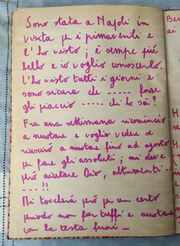 Sono stata a Napoli in
visita per i primaverili e
l'ho visto; è sempre più
bello e io voglio conoscerlo.
L'ho visto tutti i giorni e
sono sicura che ----- forse
gli piaccio ----- chi lo sa?
Fra una settimana ricomincio
a nuotare e voglio vedere se
riuscirò a nuotare fino ad agosto
per fare gli assoluti; mi deve
però aiutare Dio, altrimenti-
---!!
Mi toccherà però per un certo
periodo non far buffi e nuotare
con la testa fuori -